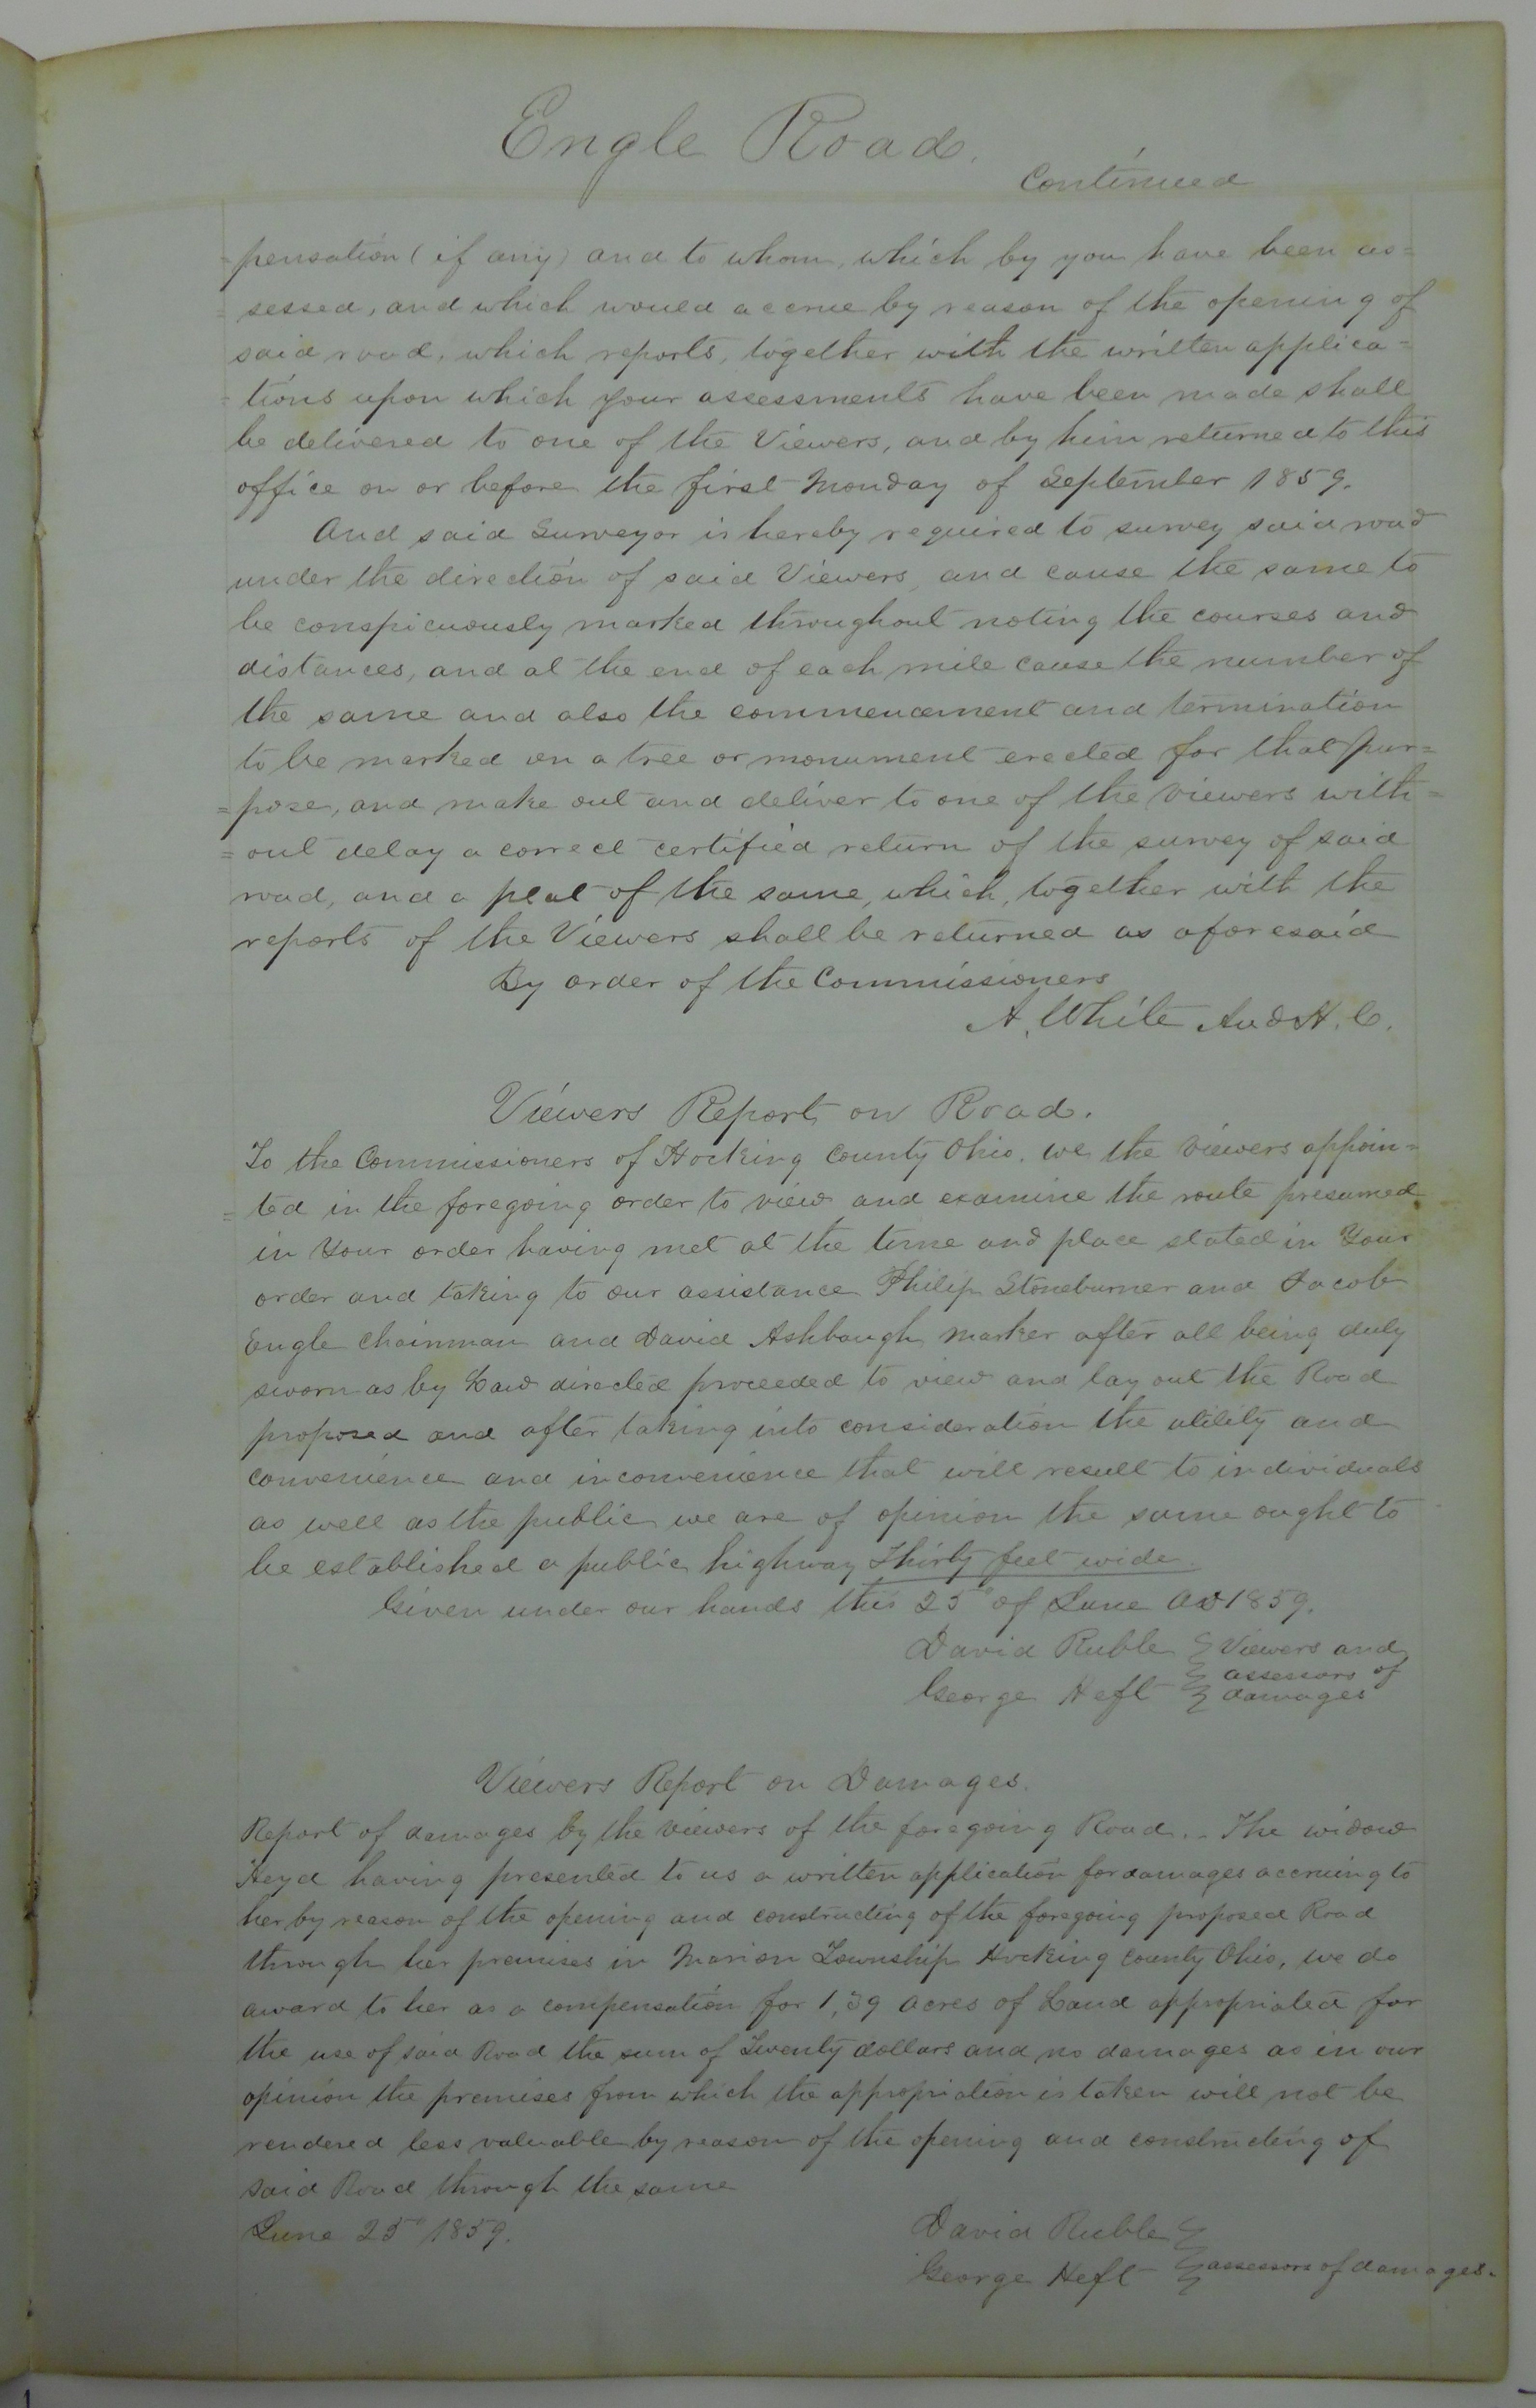 Engle Road.
Continued
-pensation (if any) and to whom, which by you have been as=
=sessed, and which would accrue by reason of the opening of
said road, which reports, together with the written applica=
=tions upon which your assessments have been made shall
be delivered to one of the Viewers, and by him returned to this
office on or before the first Monday of September 1859.
And said Surveyor is hereby required to survey said road
under the direction of said Viewers, and cause the same to
be conspicuously marked throughout noting the courses and
distances, and at the end of each mile cause the number of
the same and also the commencement and termination
to be marked on a tree or monument erected for that pur=
=pose, and make out and deliver to one of the viewers with=
=out delay a correct certified return of the survey of said
road, and a plat of the same, which, together with the
reports of the Viewers shall be returned as aforesaid
By order of the Commissioners
A. White Aud H. C.
Viewers Report on Road.
To the Commissioners of Hocking County Ohio. we the viewers appoin=
=ted in the foregoing order to view and examine the route presumed
in Your order having met at the time and place stated in Your
order and taking to our assistance Philip Stoneburner and Jacob
Engle Chainman and David Ashbaugh marker after all being duly
sworn as by Law directed proceeded to view and lay out the Road
proposed and after taking into consideration the utility and
convenience and inconvenience that will result to individuals
as well as the public we are of opinion the same ought to
be established a public highway Thirty feet wide.
Given under our hands this 25" of June AD 1859.
David Ruble } Viewers and
George Heft } assessors of
damages
Viewers Report on Damages.
Report of damages by the viewers of the foregoing Road. - The widow
Heyd having presented to us a written application for damages accruing to
her by reason of the opening and constructing of the foregoing proposed Road
through her premises in Marion Township Hocking County Ohio, we do
award to her as a compensation for 1,39 acres of Land appropriated for
the use of said Road the sum of Twenty dollars and no damages as in our
opinion the premises from which the appropriation is taken will not be
rendered less valuable by reason of the opening and constructing of
said Road through the same
June 25" 1859.
David Ruble }
George Heft } assessors of damages.